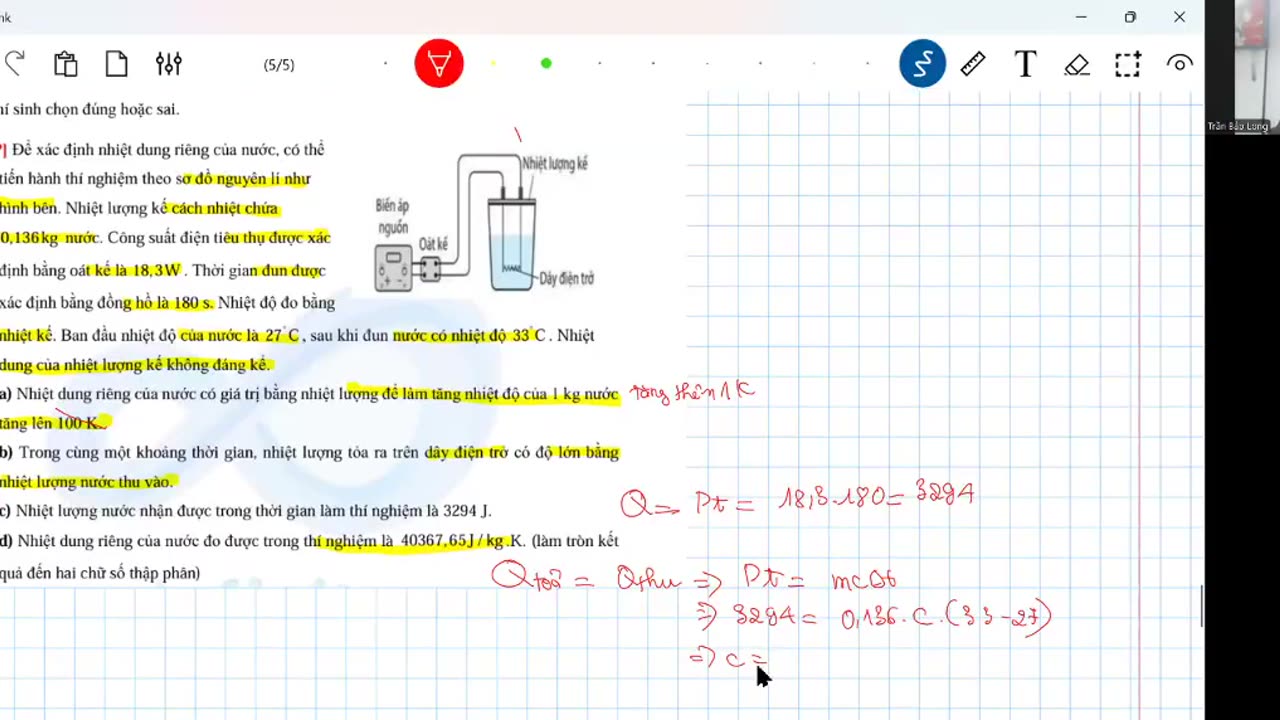 nk
(5/5)
T
Trần Bảo Long
í sinh chọn đúng hoặc sai.
] Để xác định nhiệt dung riêng của nước, có thể
tiến hành thí nghiệm theo sơ đồ nguyên lí như
hình bên. Nhiệt lượng kế cách nhiệt chứa
0,136kg nước. Công suất điện tiêu thụ được xác
định bằng oát kế là 18,3W . Thời gian đun được
xác định bằng đồng hồ là 180 s. Nhiệt độ đo bằng
nhiệt kế. Ban đầu nhiệt độ của nước là 27°C , sau khi đun nước có nhiệt độ 33°C . Nhiệt
dung của nhiệt lượng kế không đáng kể.
Nhiệt lượng kế
Biến áp
nguồn
Oát kế
Dây điện trở
a) Nhiệt dung riêng của nước có giá trị bằng nhiệt lượng để làm tăng nhiệt độ của 1 kg nước
tăng lên 100 K.
tăng thên 1K
b) Trong cùng một khoảng thời gian, nhiệt lượng tỏa ra trên dây điện trở có độ lớn bằng
nhiệt lượng nước thu vào.
c) Nhiệt lượng nước nhận được trong thời gian làm thí nghiệm là 3294 J.
Q = Pt = 18,3.180 = 3294
d) Nhiệt dung riêng của nước đo được trong thí nghiệm là 40367,65J / kg .K. (làm tròn kết
quả đến hai chữ số thập phân)
Qtoả = Qthu => Pt = mcΔt
=> 3294 = 0,136. C .(33-27)
=> c =